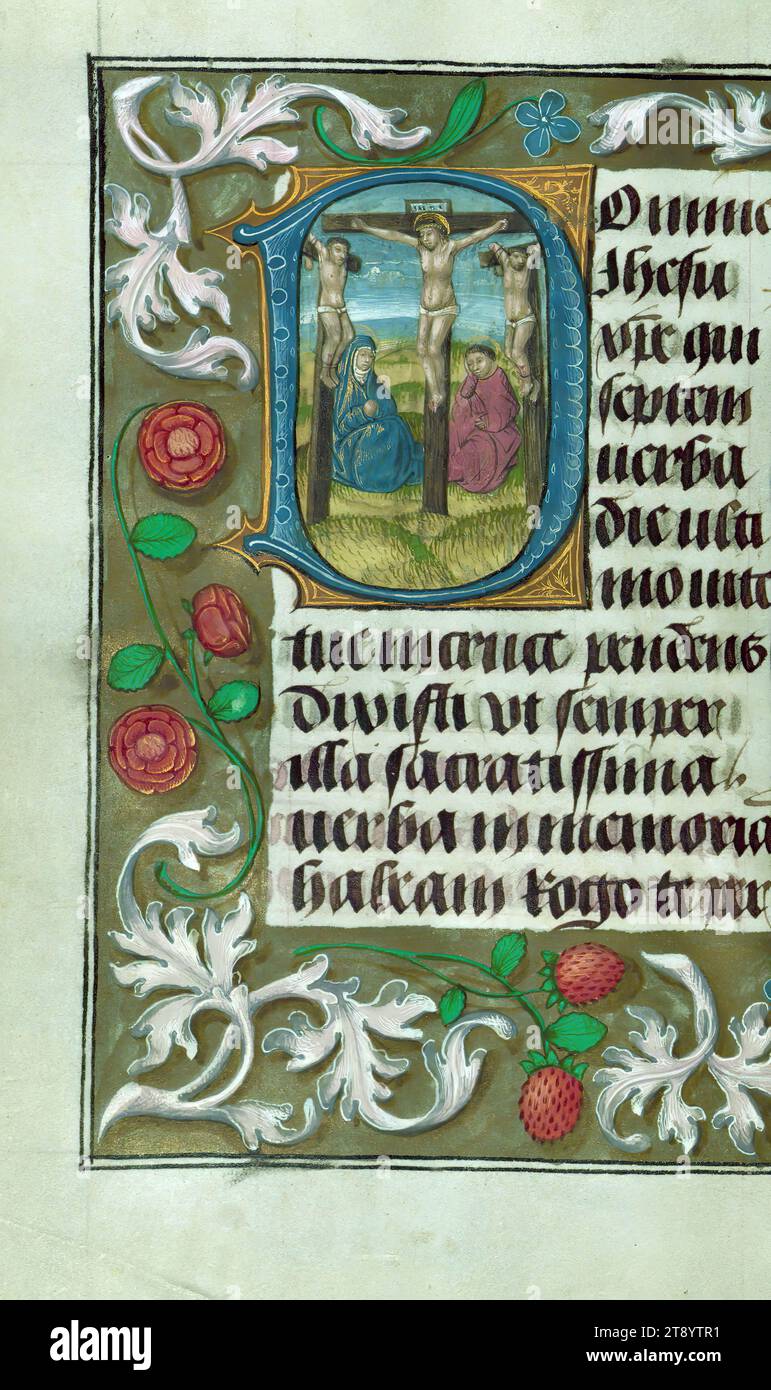 Domine
Ihesu
xp̄e qui
septem
uerba
die ulti
mo uite
tue in cruce pendens
dixisti ut semper
illa sacratissima
uerba in memoria
habeam Rogo te per
alamy
Image ID: 2T8YTR1
www.alamy.com